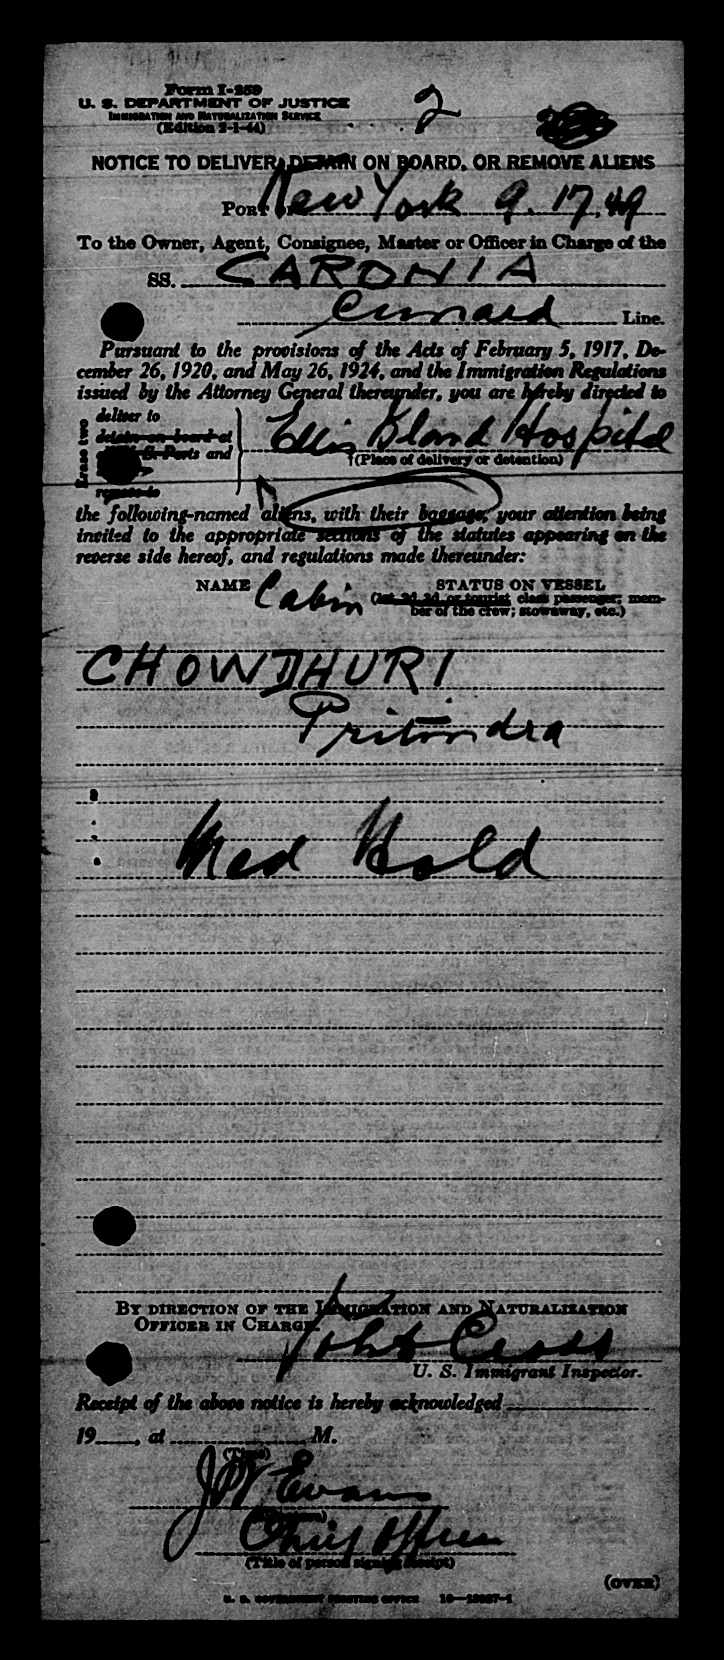 Form I-259
U. S. DEPARTMENT OF JUSTICE
IMMIGRATION AND NATURALIZATION SERVICE
(Edition 2-1-44)
2
NOTICE TO DELIVER, DETAIN ON BOARD, OR REMOVE ALIENS
PORT OF New York 9. 17, 49
To the Owner, Agent, Consignee, Master or Officer in Charge of the
SS. CARONIA
Cunard Line.
Pursuant to the provisions of the Acts of February 5, 1917, De-
cember 26, 1920, and May 26, 1924, and the Immigration Regulations
issued by the Attorney General thereunder, you are hereby directed to
Erase two
deliver to
detain on board at
U. S. Ports and
remove to
Ellis Island Hospital
†(Place of delivery or detention)
the following-named aliens, with their baggage, your attention being
invited to the appropriate sections of the statutes appearing on the
reverse side hereof, and regulations made thereunder:
NAME Cabin STATUS ON VESSEL
(1st, 2d, 3d, or tourist class passenger; mem-
ber of the crew; stowaway, etc.)
CHOWDHURI
Med Hold
BY DIRECTION OF THE IMMIGRATION AND NATURALIZATION
OFFICER IN CHARGE.
Cross
U. S. Immigrant Inspector.
Receipt of the above notice is hereby acknowledged
19___, at ___ M.
(Time)
JW Evans
Chief Officer
(Title of person signing receipt)
(OVER)
U. S. GOVERNMENT PRINTING OFFICE